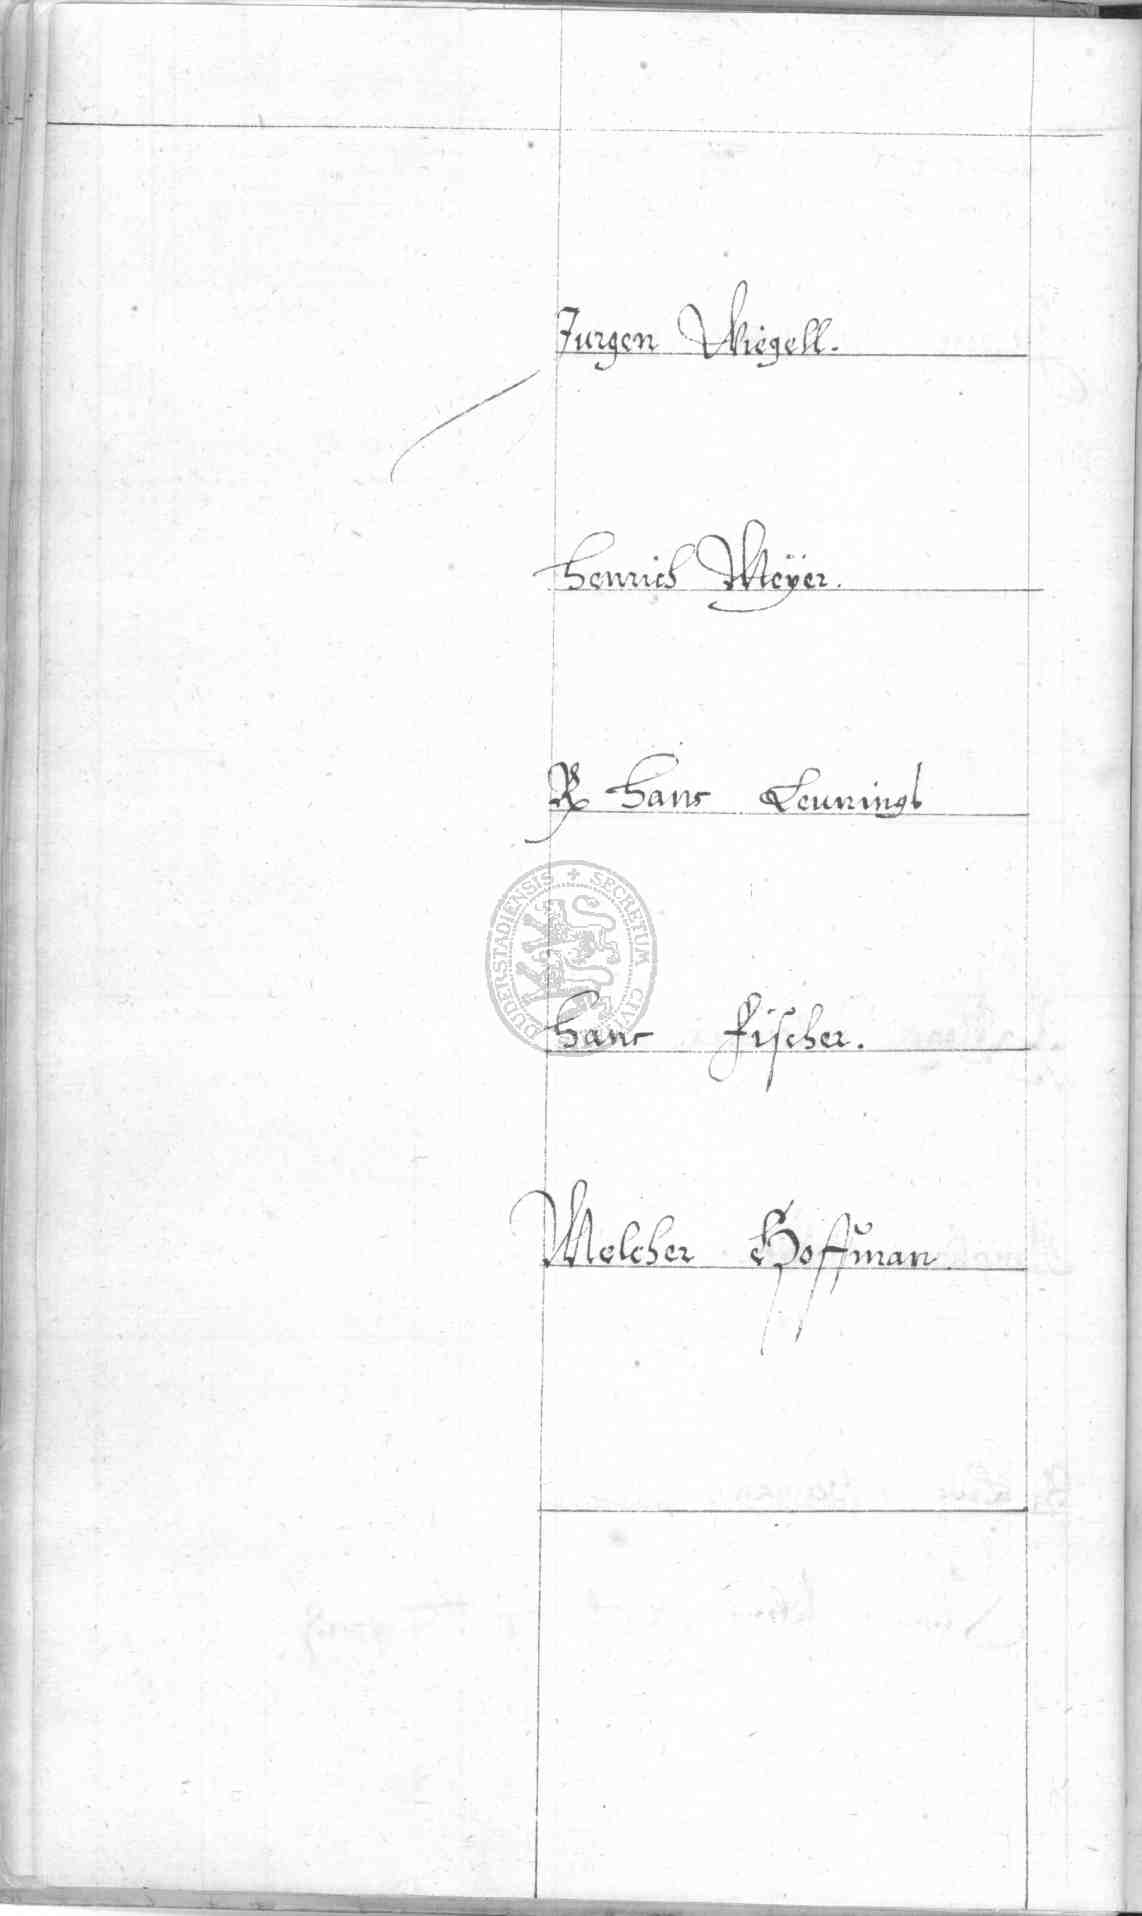 Jurgen Wiegell.
Henrich Meÿer.
R Hans Leunings
DUDERSTADIENSIS + SECRETUM CIVI
Hans Fischer.
Melcher Hoffman